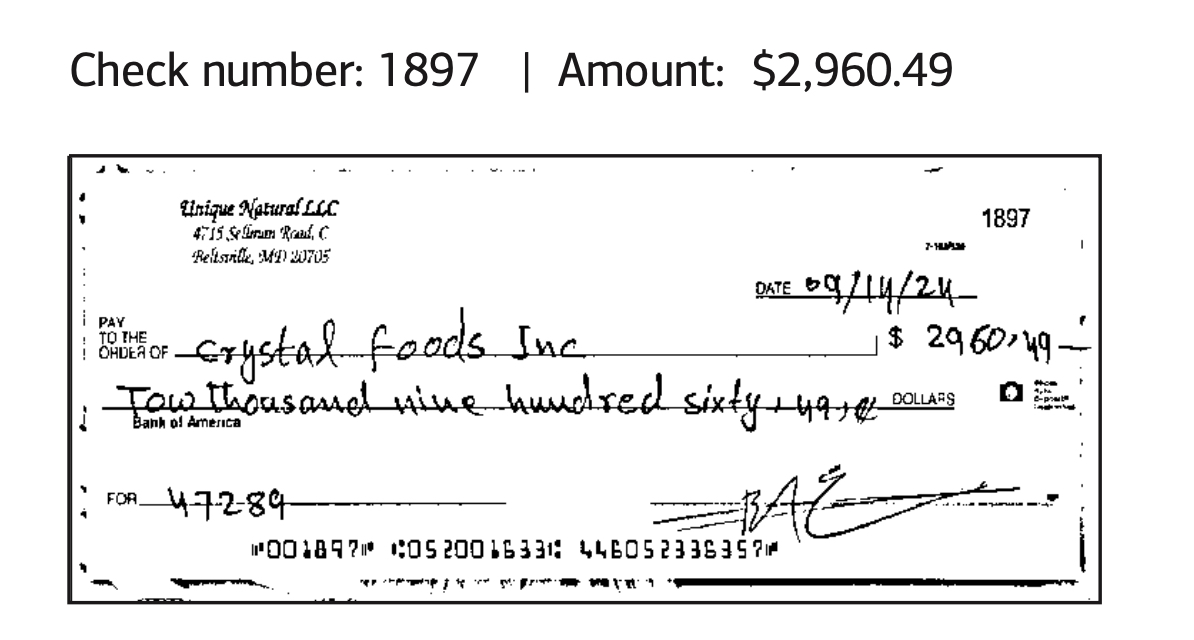 Check number: 1897 | Amount: $2,960.49
Unique Natural LLC
1897
4715 Sellman Road, C
Beltsville, MD 20705
DATE 09/14/24
PAY TO THE ORDER OF Crystal Foods Inc $ 2960.49
Tow thousand nine hundred sixty + 49 DOLLARS
Bank of America
FOR 47289
⑈001897⑈ ⑆052001633⑆ 446052336357⑈